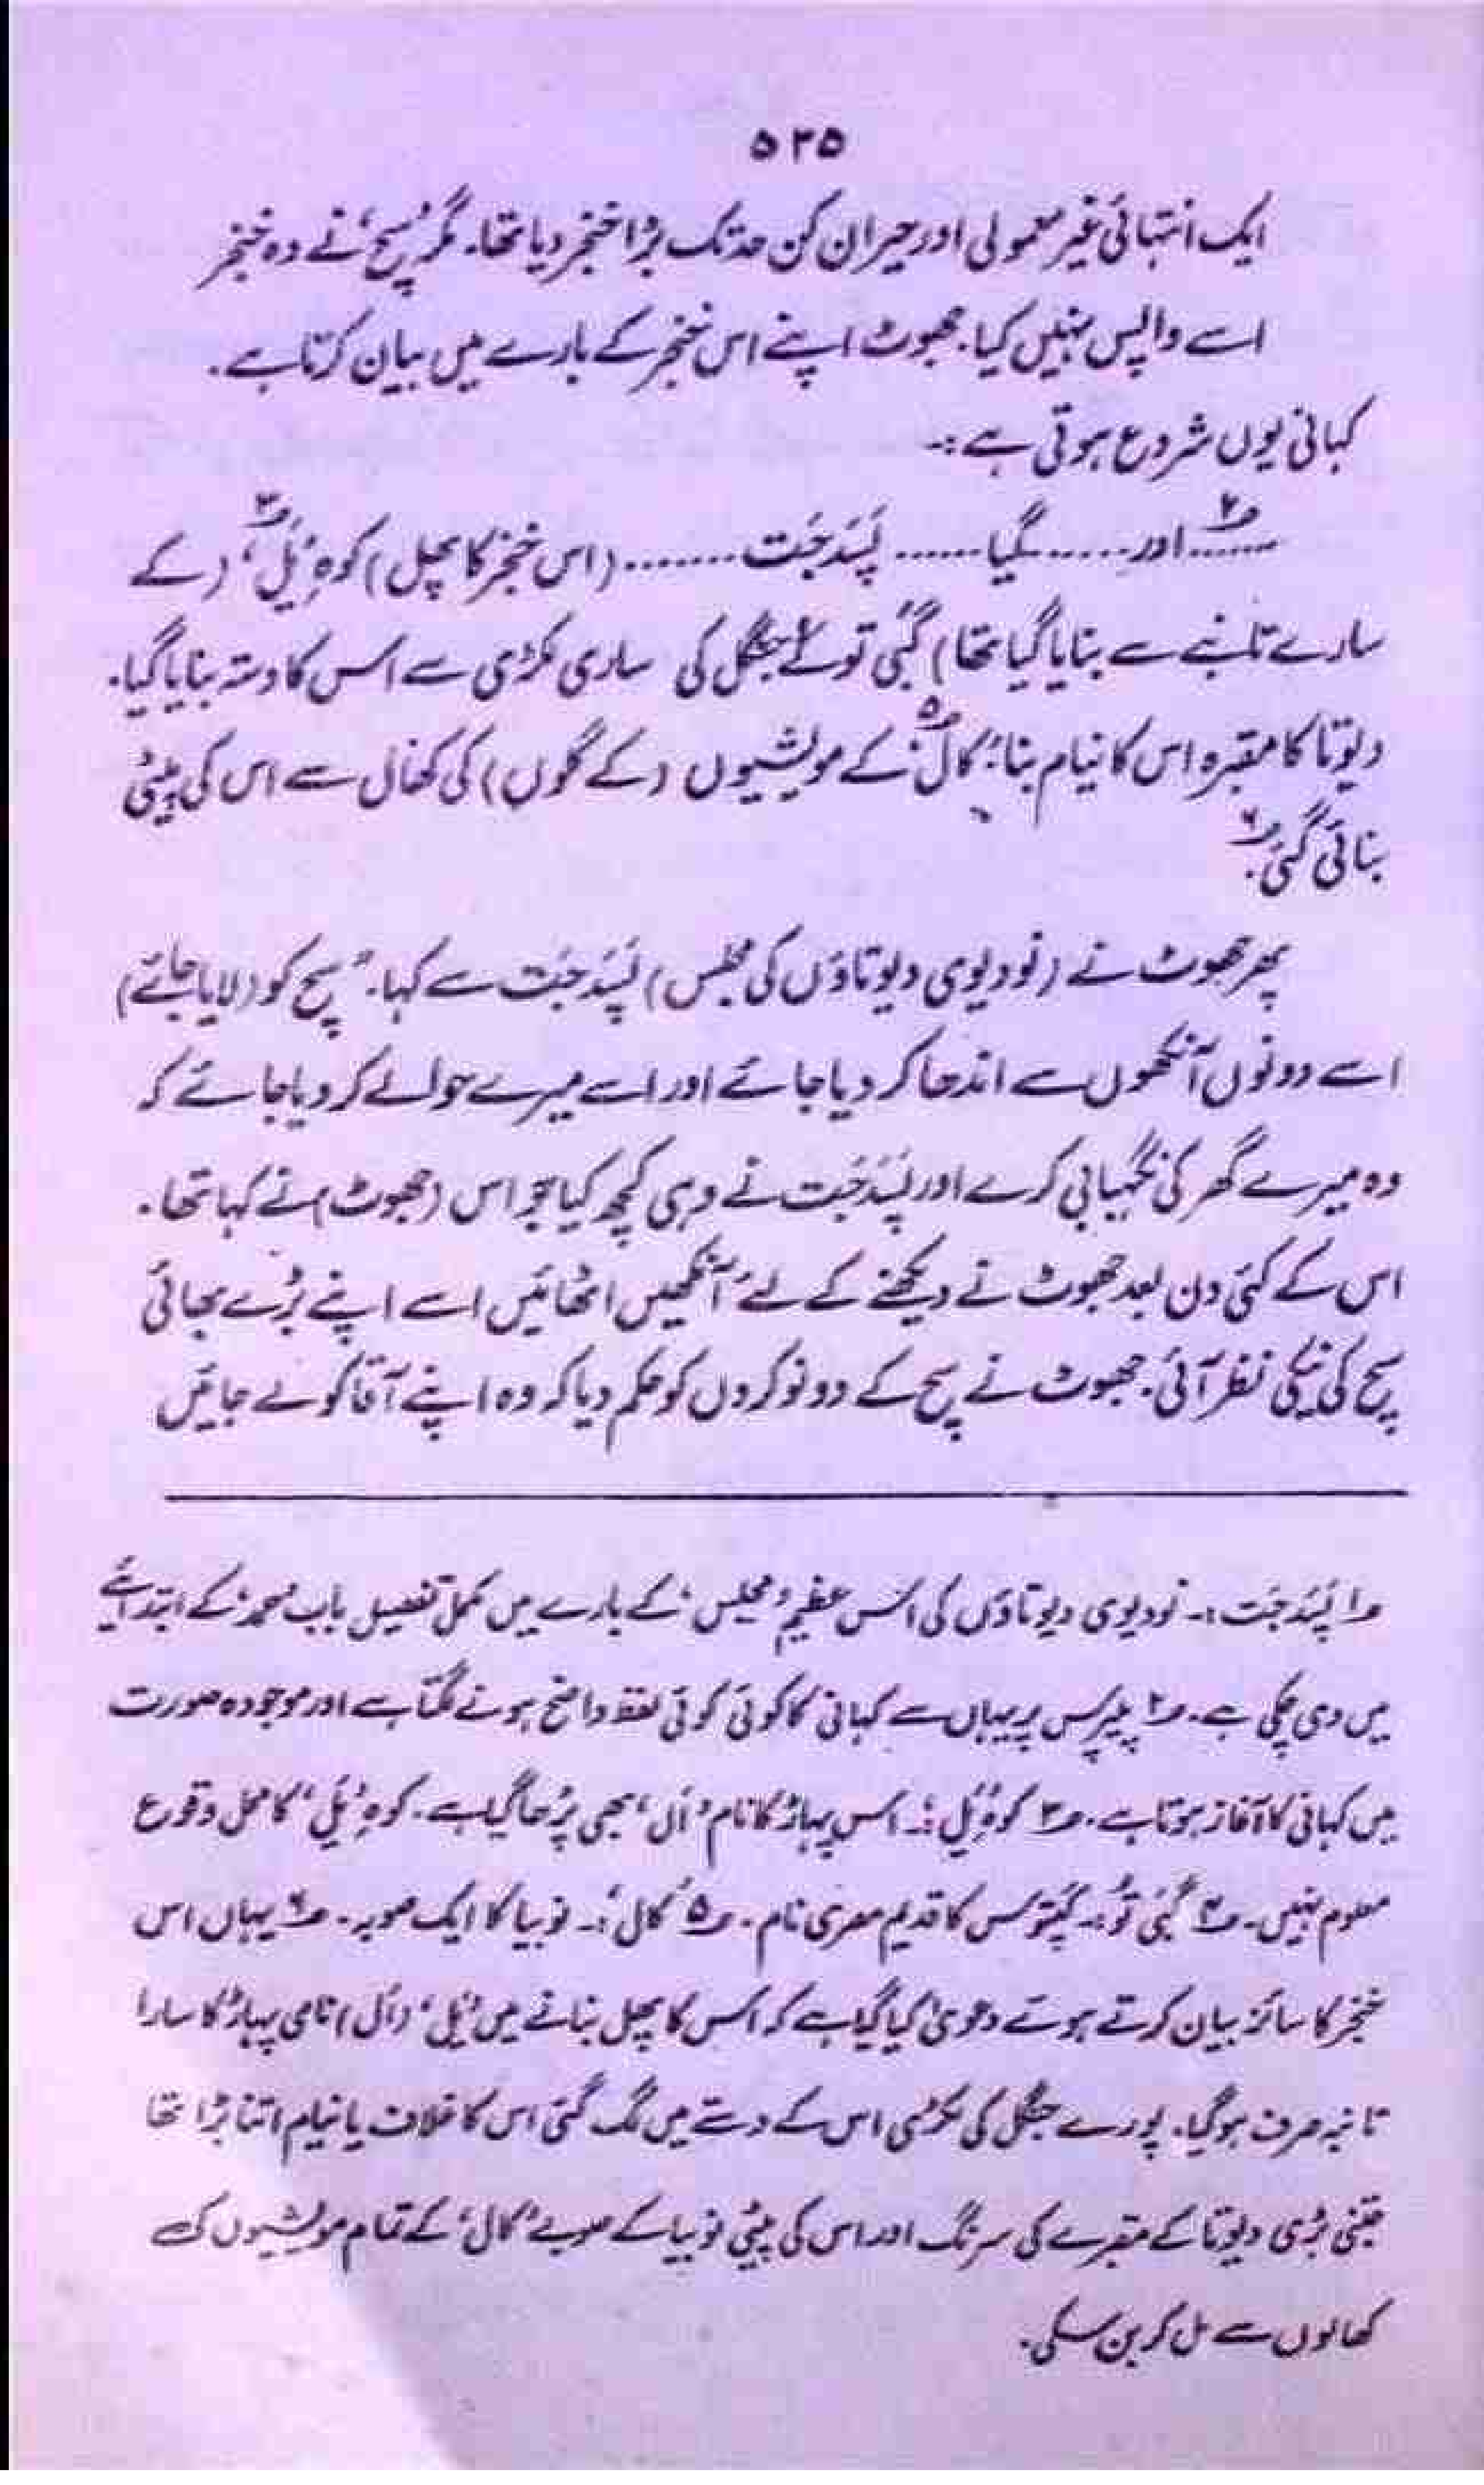 ۵۲۵
ایک انتہائی غیر معمولی اور حیران کن حد تک بڑا خنجر دیا تھا۔ مگر ’سچ‘ نے وہ خنجر
اسے واپس نہیں کیا۔ جھوٹ اپنے اس خنجر کے بارے میں بیان کرتا ہے۔
کہانی یوں شروع ہوتی ہے :۔
......؂۲ اور ...... گیا ...... پَسَدجَت ....... (اس خنجر کا پھل) کوہِ ’یَل‘؂۳ (کے
سارے تانبے سے بنایا گیا تھا) گَبی تُو؂۴ کے جنگل کی ساری لکڑی سے اس کا دستہ بنایا گیا۔
دیوتا کا مقبرہ اس کا نیام بنا۔ ’کال‘؂۵ کے مویشیوں (کے گلوں) کی کھال سے اس کی پیٹی
بنائی گئی؂۶۔
پھر جھوٹ نے (نو دیوی دیوتاؤں کی مجلس) پَسَدجَت سے کہا۔ "سچ کو (لایا جائے)
اسے دونوں آنکھوں سے اندھا کر دیا جائے اور اسے میرے حوالے کر دیا جائے کہ
وہ میرے گھر کی نگہبانی کرے اور پَسَدجَت نے وہی کچھ کیا جو اس (جھوٹ) نے کہا تھا۔
اس کے کئی دن بعد جھوٹ نے دیکھنے کے لئے آنکھیں اٹھائیں اسے اپنے بڑے بھائی
سچ کی نیکی نظر آئی۔ جھوٹ نے سچ کے دو نوکروں کو حکم دیا کہ وہ اپنے آقا کو لے جائیں
؂۱ پَسَدجَت :۔ نو دیوی دیوتاؤں کی اس عظیم ’مجلس‘ کے بارے میں مکمل تفصیل باب ’حمد‘ کے ابتدائیے
میں دی چکی ہے۔ ؂۲ پیپرس پر یہاں سے کہانی کا کوئی کوئی لفظ واضح ہونے لگتا ہے اور موجودہ صورت
میں کہانی کا آغاز ہوتا ہے۔ ؂۳ کوہِ ’یَل‘ :۔ اس پہاڑ کا نام ’اَل‘ بھی پڑھا گیا ہے۔ کوہِ ’یَل‘ کا محل وقوع
معلوم نہیں۔ ؂۴ گَبی تُو :۔ کپتوس کا قدیم مصری نام۔ ؂۵ ’کال‘ :۔ نوبیا کا ایک صوبہ۔ ؂۶ یہاں اس
خنجر کا سائز بیان کرتے ہوئے دعویٰ کیا گیا ہے کہ اس کا پھل بنانے میں ’یَل‘ (اَل) نامی پہاڑ کا سارا
تانبہ صرف ہو گیا۔ پورے جنگل کی لکڑی اس کے دستے میں لگ گئی اس کا غلاف یا نیام اتنا بڑا تھا
جتنی بڑی دیوتا کے مقبرے کی سرنگ اور اس کی پیٹی نوبیا کے صوبے ’کال‘ کے تمام مویشیوں کی
کھالوں سے مل کر بن سکی۔